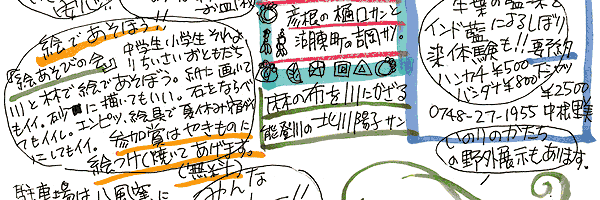 絵であそぼう!!
『絵あそびの会』
中学生小学生それより
ちいさいおともだち
川と林で絵であそぼう。紙に画いて
もイイ。砂に描いてもいい。石をならべ
てもイイし。エンピツ、絵具で夏休み宿題
にしてもイイ。
参加賞はやきものに
絵つけて焼いてあげます。
(無料)
駐車場は八風窯に
みんな
彦根の樋口サンと
湖東町の吉岡サン。
麻の布を川にかざる
能登川の北川陽子サン
生葉の藍染と
インド藍によるしぼり
染体験も!!要予約
ハンカチ¥500
バンダナ¥800
¥2500
0748-27-1955 中根里美
の野外展示もあります。